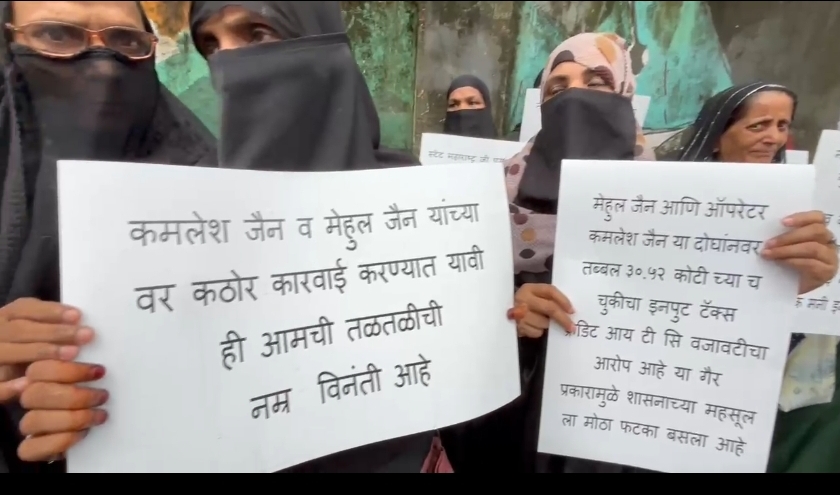 कमलेश जैन व मेहुल जैन यांच्या
वर कठोर कारवाई करण्यात यावी
ही आमची तळतळीची
नम्र विनंती आहे
मेहुल जैन आणि ऑपरेटर
कमलेश जैन या दोघांनवर
तब्बल ३०.५२ कोटी च्या च
चुकीचा इनपुट टॅक्स
आय टी सि वजावटीचा
आरोप आहे या गैर
प्रकारामुळे शासनाच्या महसूल
ला मोठा फटका बसला आहे